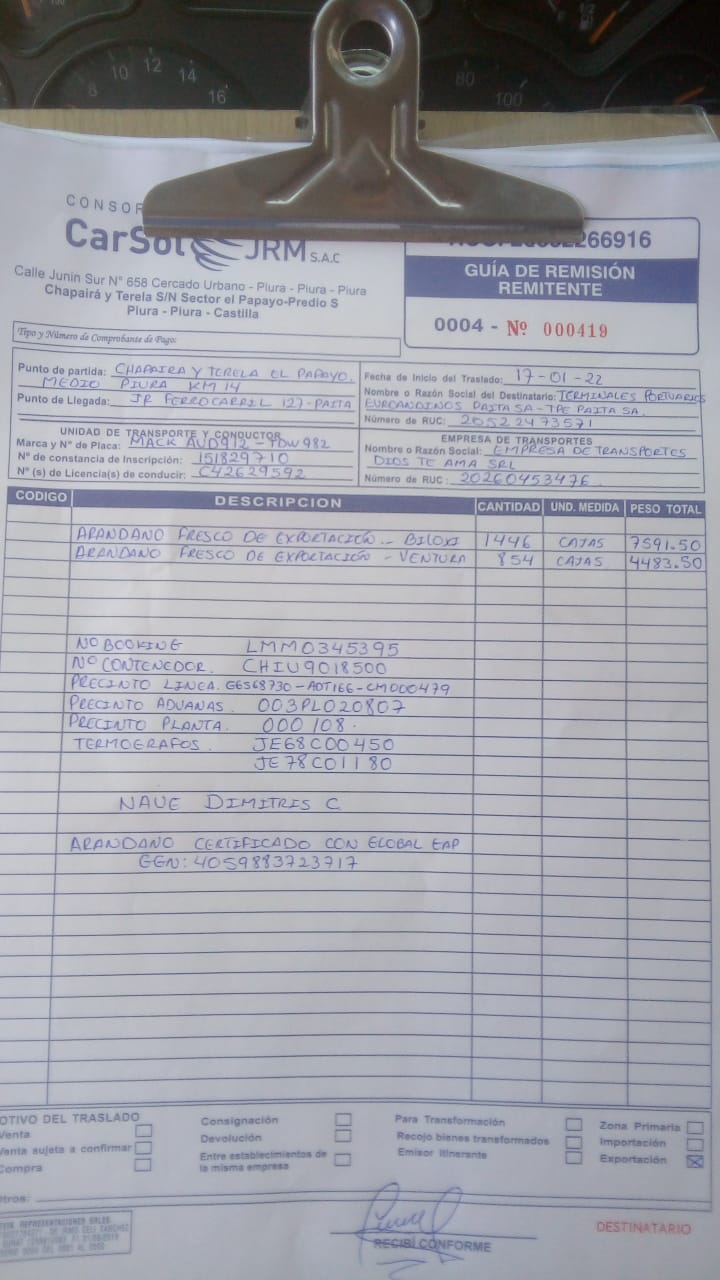 8 10 12 14 16 80 100
CONSOR
CarSol JRM S.A.C
Calle Junin Sur N° 658 Cercado Urbano - Piura - Piura - Piura
Chapairá y Terela S/N Sector el Papayo-Predio S
Piura - Piura - Castilla
266916
GUÍA DE REMISIÓN
REMITENTE
0004 - Nº 000419
Tipo y Número de Comprobante de Pago:
Punto de partida: CHAPAIRA Y TERELA EL PAPAYO.
MEDIO PIURA KM 14
Punto de Llegada: JR FERROCARRIL 127-PAITA
Fecha de Inicio del Traslado: 17-01-22
Nombre o Razón Social del Destinatario: TERMINALES PORTUARIOS
EUROANDINOS PAITA SA - TPE PAITA SA.
Número de RUC: 20522473571
UNIDAD DE TRANSPORTE Y CONDUCTOR
Marca y N° de Placa: MACK AUD912 -
N° de constancia de Inscripción: 151829710
N° (s) de Licencia(s) de conducir: C42629592
EMPRESA DE TRANSPORTES
Nombre o Razón Social: EMPRESA DE TRANSPORTES
DIOS TE AMA SRL
Número de RUC: 20260453476
CODIGO DESCRIPCION CANTIDAD UND. MEDIDA PESO TOTAL
ARANDANO FRESCO DE EXPORTACIÓN - BILOXI 1446 CAJAS 7591.50
ARANDANO FRESCO DE EXPORTACIÓN - VENTURA 854 CAJAS 4483.50
Nº BOOKING LMM0345395
Nº CONTENEDOR. CHIU9018500
PRECINTO LINEA. GES68730-ADT166-CM000479
PRECINTO ADUANAS. 003PL020807
PRECINTO PLANTA. 000108.
TERMOGRAFOS. JE68C00450
JE78C01180
NAVE DIMITRIS C
ARANDANO CERTIFICADO CON GLOBAL GAP
GGN: 4059883723717
OTIVO DEL TRASLADO
Venta
Venta sujeta a confirmar
Compra
Consignación
Devolución
Entre establecimientos de
la misma empresa
Para Transformación
Recojo bienes transformados
Emisor Itinerante
Zona Primaria
Importación
Exportación
tros:
RECIBÍ CONFORME
DESTINATARIO